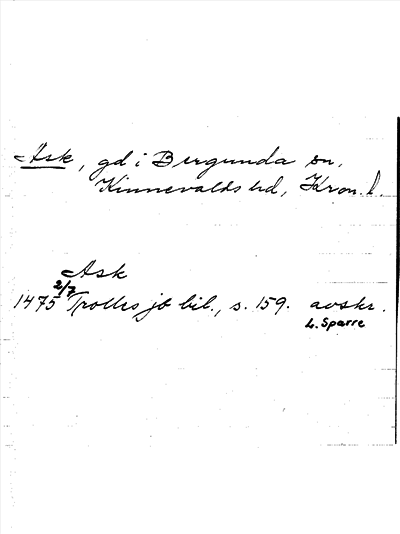 Ask, gd i Bergunda sn,
Kinnevalds hd, Kron. l.
Ask
1475 2/7 Trolles jb bil., s. 159. avskr.
L. Sparre